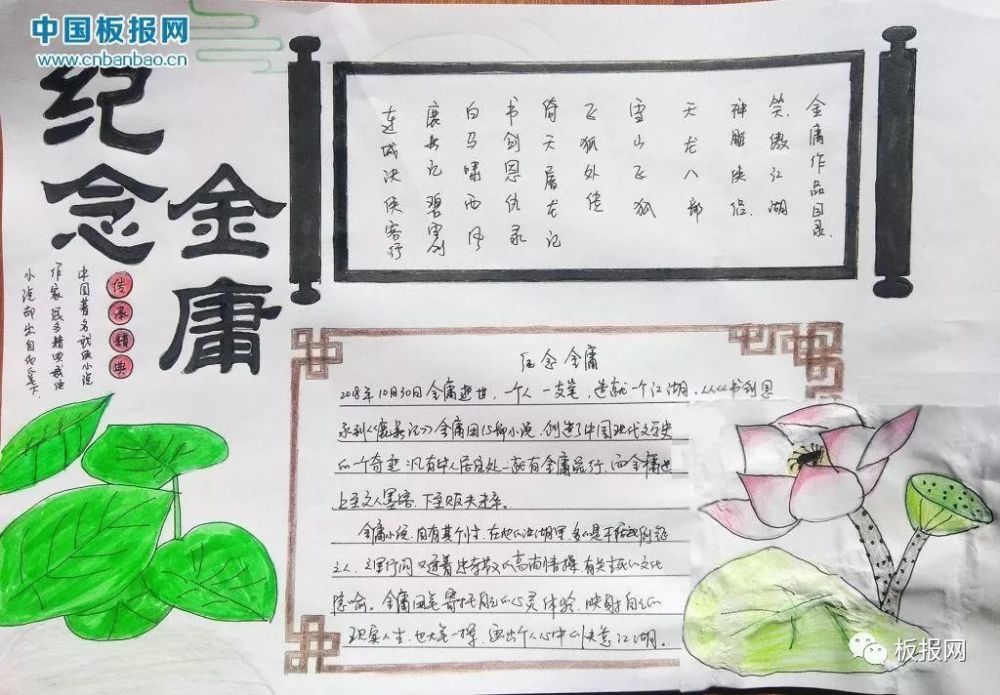 中国板报网
www.cnbanbao.cn
纪念
金庸
传承精典
中国著名武侠小说
作家很多精典武侠
小说都出自他笔下
金庸作品目录
笑傲江湖
神雕侠侣
天龙八部
雪山飞狐
飞狐外传
倚天屠龙记
书剑恩仇录
白马啸西风
鹿鼎记 碧血剑
连城决 侠客行
纪念金庸
2018年10月30日金庸逝世，一个人一支笔，造就一个江湖，从《书剑恩
录到《鹿鼎记》金庸用15部小说，创造了中国现代文学史
的一个奇迹：凡有中人居住处一就有金庸流行，而金庸迷
上至文人墨客，下至贩夫走卒。
金庸小说，自有其个性，在他的江湖里
之人，字里行间又透着
金庸用笔寄托自己的心灵体验，映射自己的
现实人生，也大笔一挥，画出个人心中的快意江湖。
板报网